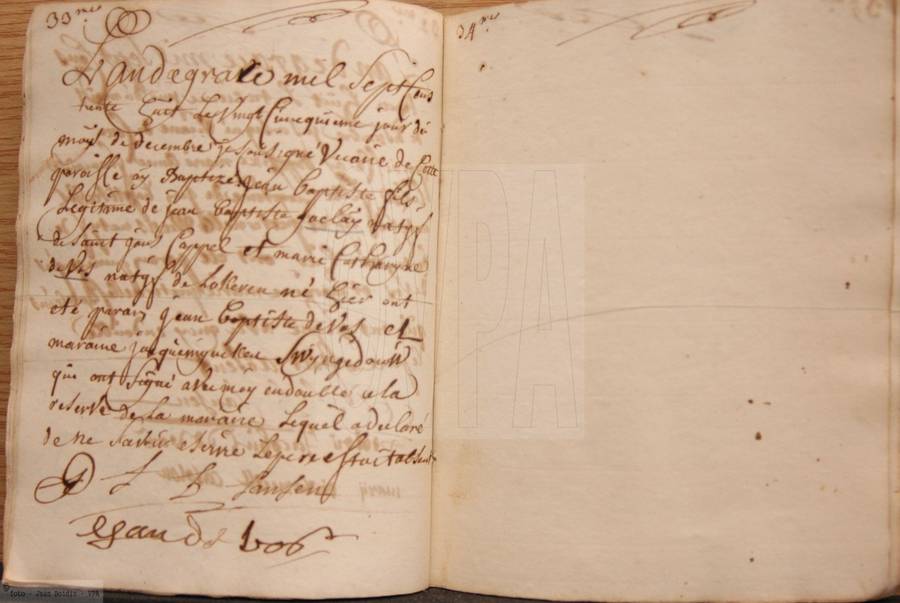 33me
L'an de grace mil sept Cens
trente huit Le Vingt Cincquieme jour du
mois de decembre je sousigné Vicaire de Cette
paroisse ay Baptizé jean baptiste fils
Legitime de jean baptiste natyf
de saint jans Cappel et marie Catharyne
de Vos natyf de Lokeren né hier ont
eté parain jean baptiste de Vos et
maraine jacquemynken Swyngedouw
qui ont signé avec moy endouble a la
reserve de La maraine Lequel a declaré
de ne savoir escrire Le pere estoit absent
J B Jansen
Jan De vos
34me
VPA
foto - Jean Doidic - VPA